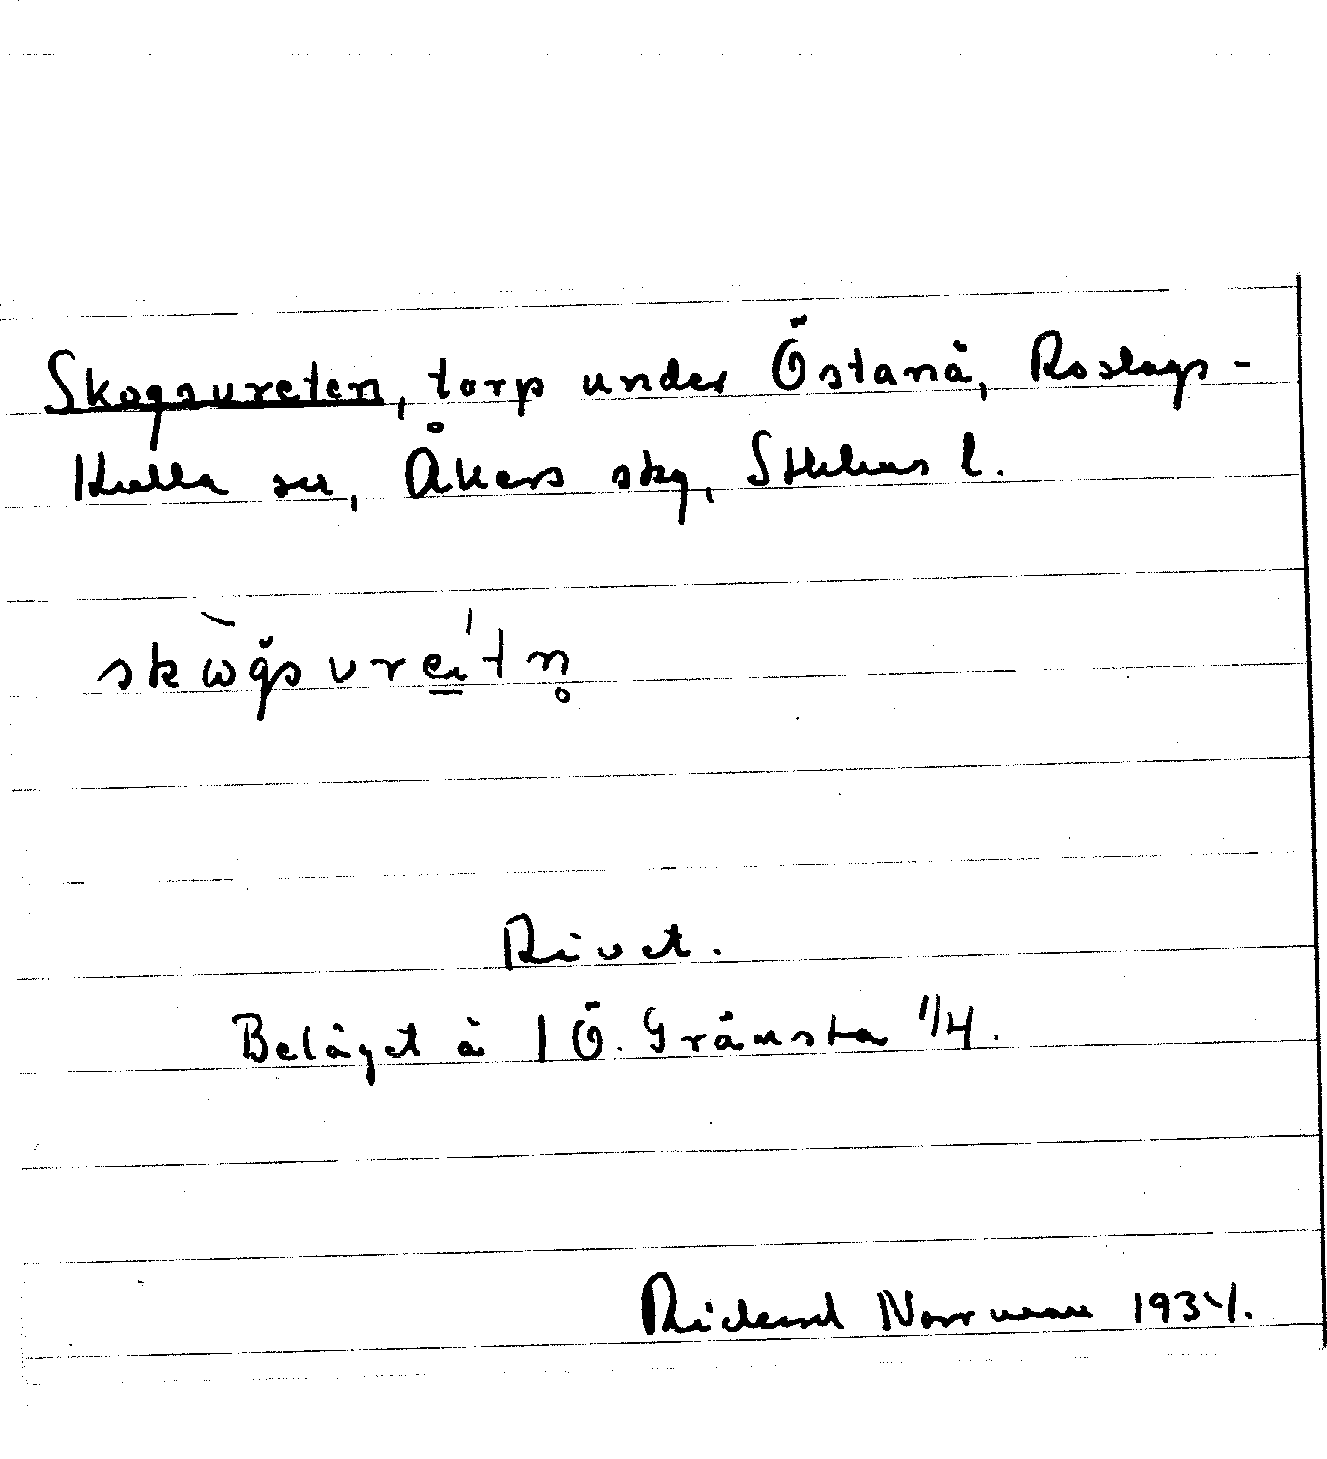 Skogsvreten, torp under Östanå, Roslags-
Kulla sn, Åkers skg, Sthlms l.
skὼǧsvreí̲tn̥
Rivet.
Beläget å 1 Ö. Gränsta 1/4.
Rickard Norrman 1934.